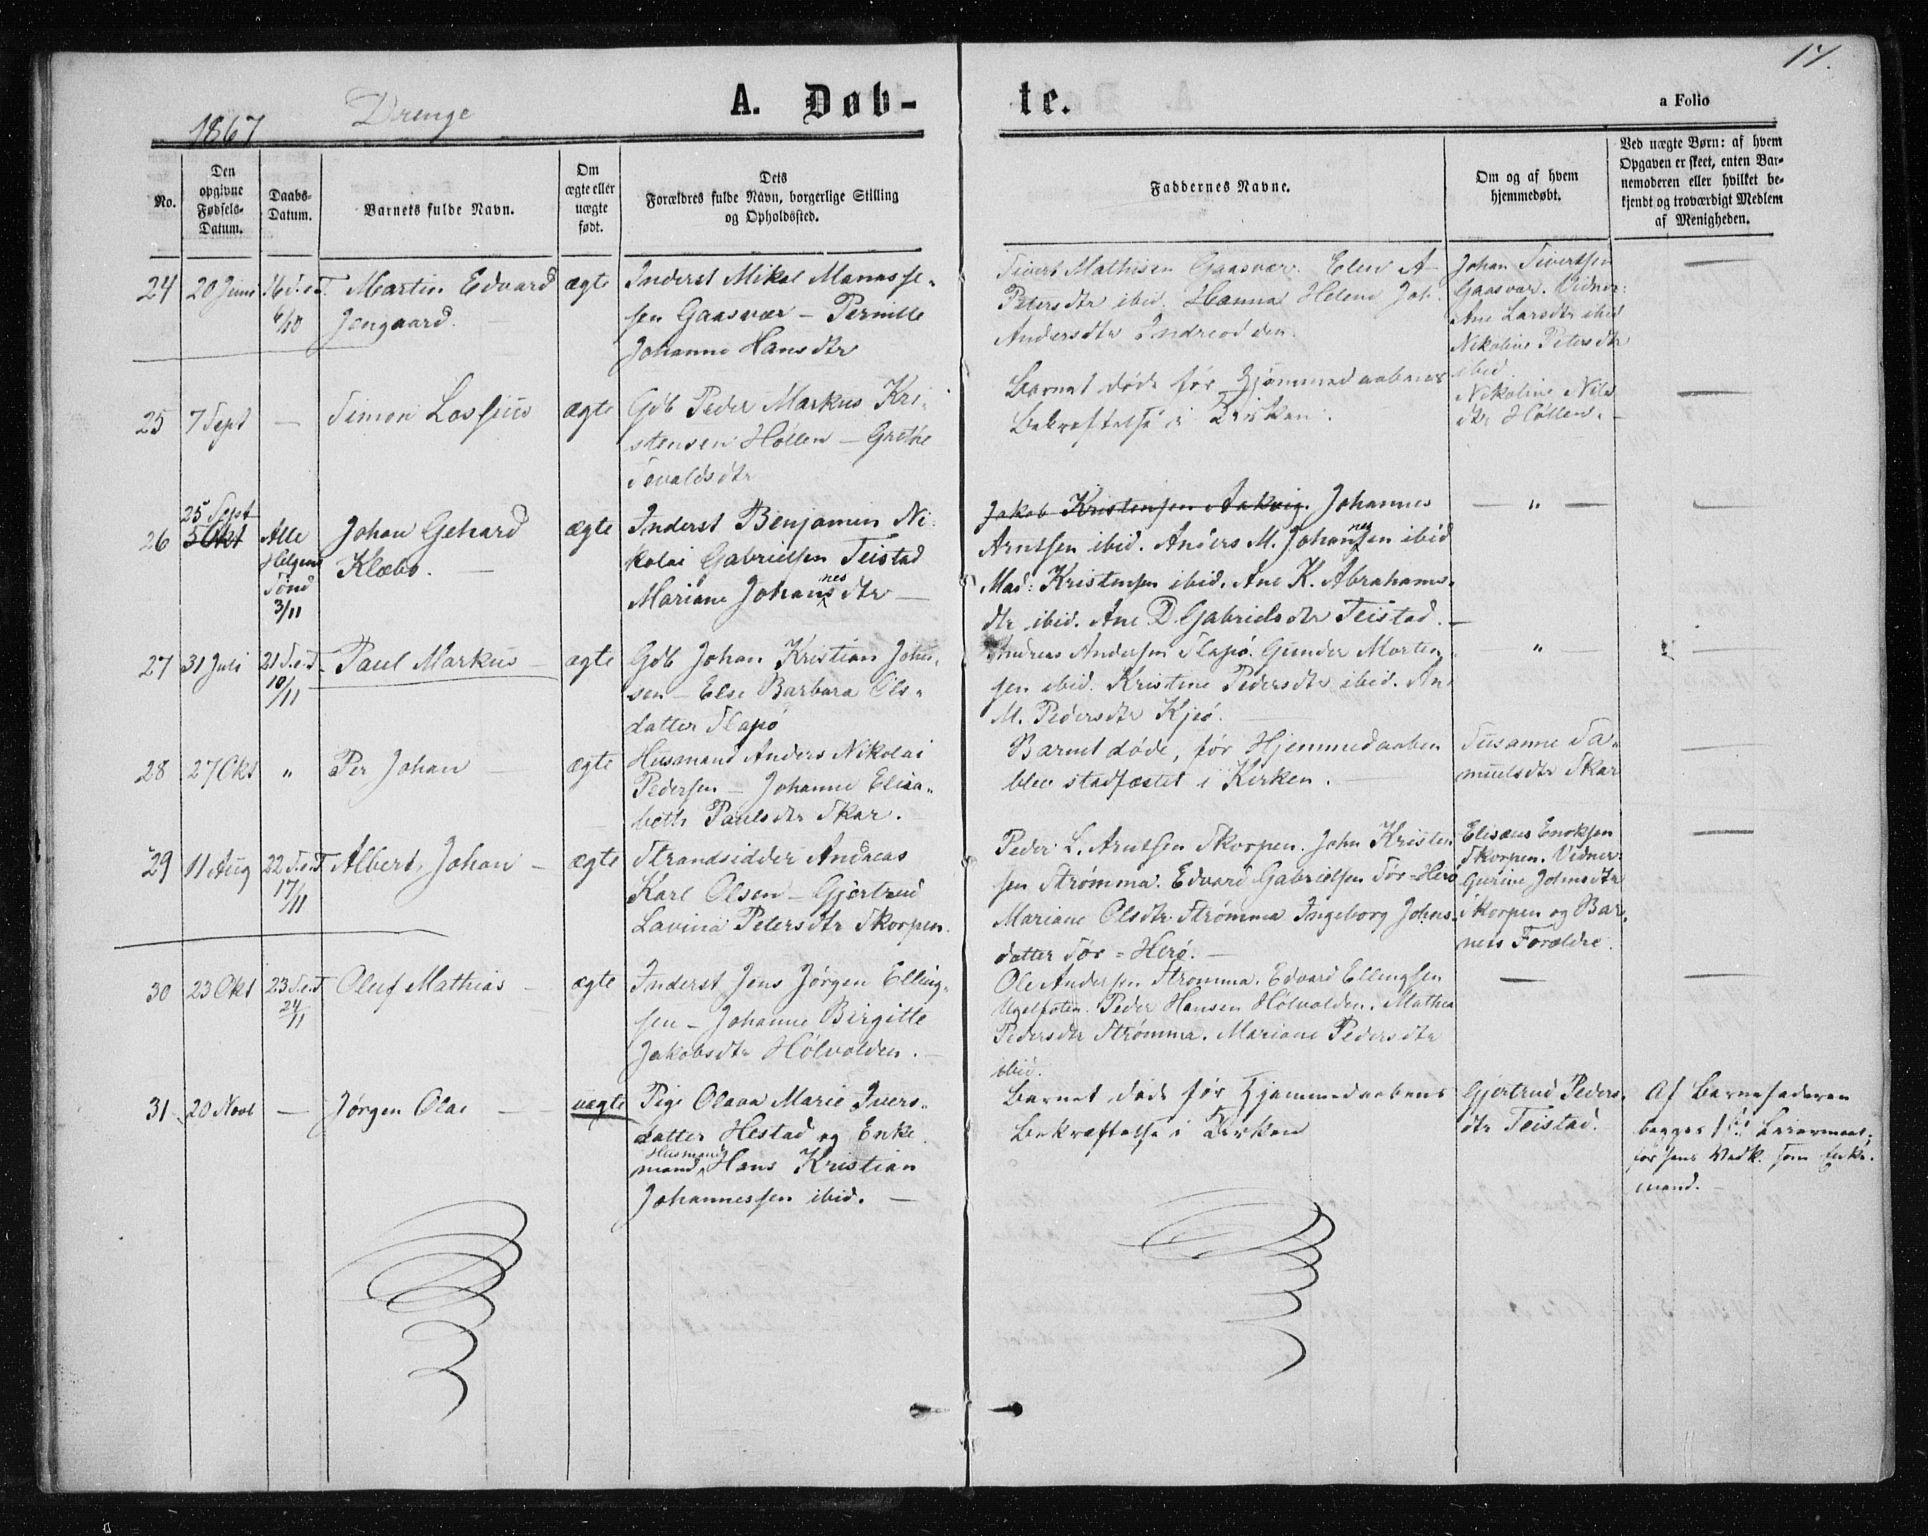 17.
1867 Drenge A. Døb- te. a Folio
No.
Den opgivne Fødsels-Datum.
Daabs-Datum.
Barnets fulde Navn.
Om ægte eller uægte født.
Dets Forældres fulde Navn, borgerlige Stilling og Opholdssted.
Faddernes Navne.
Om og af hvem hjemmedøbt.
Ved uægte Børn: af hvem Opgaven er skeet, enten Barnemoderen eller hvilket bekjendt og troværdigt Medlem af Menigheden.
24 20 Juni 16 S.e.T. 6/10
Martin Edvard
Jengaard.
ægte
Inderst Mikal Manasse-
sen Gaasvær – Pernille
Johanne Hansdtr
Sivert Mathisen Gaasvær. Elen A
Petersdtr ibid. Hanna Helene Joh.
Andersdtr Indreodden.
Johan Sivertsen
Gaasvær. Vidner:
Ane Larsdtr ibid
Nikoline Petersdtr
ibid.
—
25 7 Sept —
Simon Lossius
ægte
Gdb Peder Markus Kri-
stensen Høllen – Grethe
Sevaldsdtr
Barnet døde før Hjemmedaabens
Bekræftelse i Kirken.
Nikoline Nils
dtr Høllen. –
—
26 25 Sept 5 Okt
Alle
Helgens
Sønd
3/11
Johan Gehard
Klæbo. —
ægte
Inderst Benjamin Ni-
kolai Gabrielsen Teistad
Mariane Johannesdtr —
Jakob Kristensen Aakvig. Johannes
Arntsen ibid. Anders M. Johannesen ibid
Mad: Kristensen ibid. Ane K. Abrahams-
dtr ibid. Ane D. Gabrielsdtr Teistad. —
— " —
—
27 31 Juli 21 S.e.T 10/11
Paul Markus —
ægte
Gdb Johan Kristian John-
sen – Else Barbara Ols-
datter Slapø
Andreas Andersen Slapø. Gunder Morten-
sen ibid. Kristine Pedersdtr ibid. An
M. Pedersdtr Kjeø. —
"
—
28 27 Okt "
Per Johan —
ægte
Husmand Anders Nikolai
Pedersen – Johanne Elisa-
beth Paulsdtr Skar.
Barnet døde, før Hjemmedaaben
blev stadfæstet i Kirken. —
Susanne Sa-
muelsdtr Skar
—
29 11 Aug 22 S.e.T 17/11
Albert Johan —
ægte
Strandsidder Andreas
Karl Olsen – Gjertrud
Lavina Petersdtr Skorpen.
Peder L. Arntsen Skorpen. John Kristen
sen Strømma. Edvard Gabrielsen Sør=Herø
Mariane Olsdtr Strømma Ingeborg Johns-
datter Sør=Herø. —
Elisæus Enoksen
Skorpen. Vidner:
Gurine Johnsdtr
Skorpen og Bar-
nets Forældre.
—
30 23 Okt 23 S.e.T 24/11
Oluf Mathias —
ægte
Inderst Jens Jørgen Elling-
sen – Johanne Birgitte
Jakobsdtr Hølvolden. —
Ole Andersen Strømma. Edvard Ellingsen
Peder Hansen Hølvolden. Mathea
Pedersdtr Strømma. Mariane Pedersdtr
ibid.
—
—
31 20 Novb —
Jørgen Olai —
uægte
Pige Olava Marie Ivers-
datter Hestad og Enke-
mand, Husmand Hans Kristian
Johannessen ibid. —
Barnet døde før Hjemmedaabens
Bekræftelse i Kirken
Gjertrud Peders-
dtr Teistad.
Af Barnefaderen
begges 1ste Leiermaal,
for hans Vedk. som Enke-
mand. –